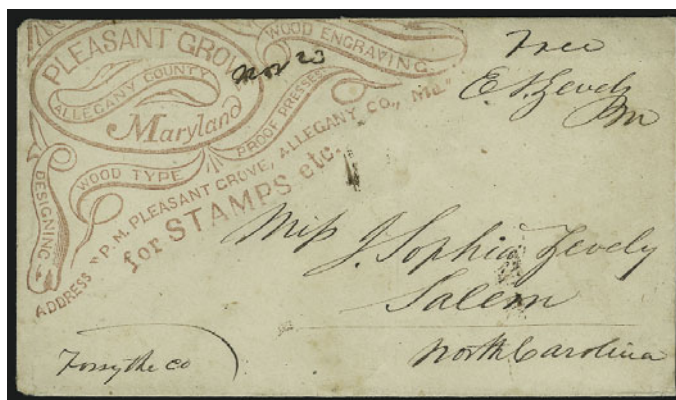 PLEASANT GROVE
ALLEGANY COUNTY
Maryland
Nov 23
WOOD ENGRAVING.
PROOF PRESSES.
WOOD TYPE
DESIGNING.
ADDRESS "P. M. PLEASANT GROVE, ALLEGANY CO., Md."
for STAMPS etc.
Free
E. S. Zevely
PM
Miss J. Sophia Zevely
Salem
North Carolina
Forsythe co